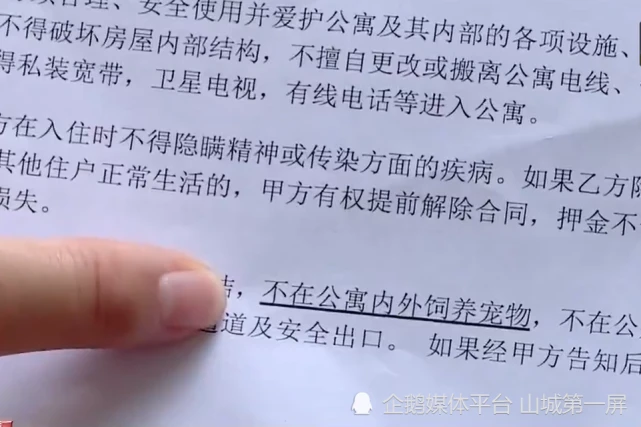 合理、安全使用并爱护公寓及其内部的各项设施、
不得破坏房屋内部结构，不擅自更改或搬离公寓电线、
得私装宽带，卫星电视，有线电话等进入公寓。
方在入住时不得隐瞒精神或传染方面的疾病。如果乙方隐
其他住户正常生活的，甲方有权提前解除合同，押金不
损失。
洁，不在公寓内外饲养宠物，不在公
道及安全出口。 如果经甲方告知后
企鹅媒体平台 山城第一屏